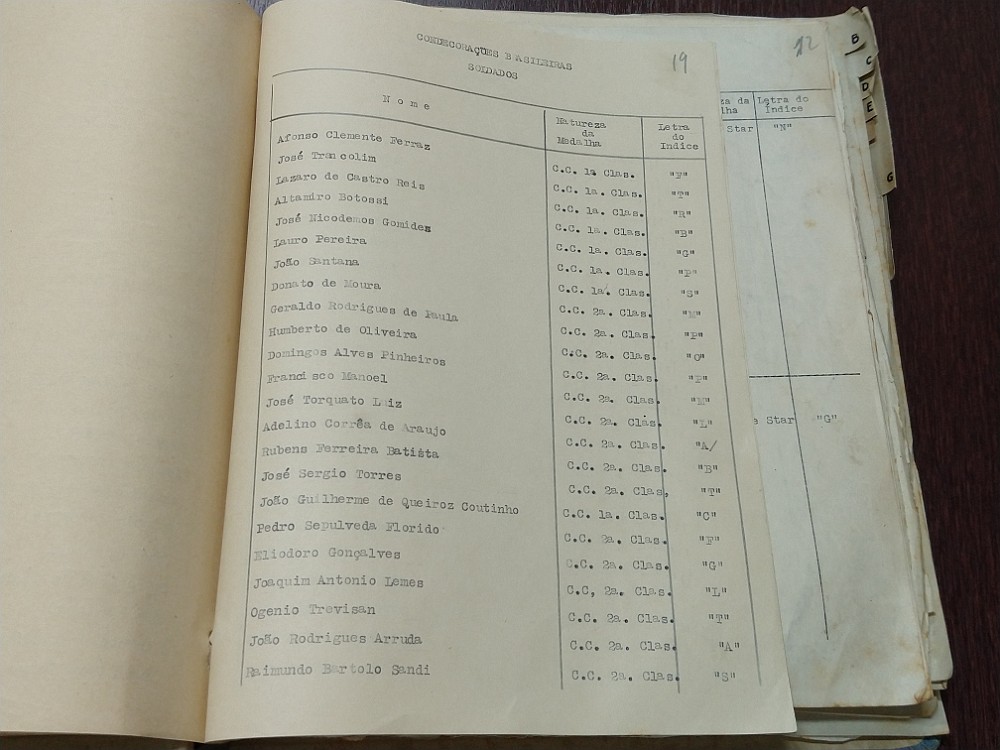 CONDECORAÇÕES BRASILEIRAS 19
SOLDADOS
Nome Natureza da Medalha Letra do Indice
Afonso Clemente Ferraz C.C. 1a Clas. "F"
José Trancolim C.C. 1a. Clas. "T"
Lazaro de Castro Reis C.C. 1a. Clas. "R"
Altamiro Botossi C.C. 1a. Clas. "B"
José Nicodemos Gomides C.C. 1a. Clas. "G"
Lauro Pereira C.C. 1a. Clas. "P"
João Santana C.C. 1a. Clas. "S"
Donato de Moura C.C. 2a. Clas. "M"
Geraldo Rodrigues de Paula C.C. 2a. Clas. "P"
Humberto de Oliveira C.C. 2a. Clas. "O"
Domingos Alves Pinheiros C.C. 2a. Clas. "P"
Francisco Manoel C.C. 2a. Clas. "M"
José Torquato Luiz C.C. 2a. Clas. "L"
Adelino Corrêa de Araujo C.C. 2a. Clas. "A/
Rubens Ferreira Batista C.C. 2a. Clas. "B"
José Sergio Torres C.C. 2a. Clas, "T"
João Guilherme de Queiroz Coutinho C.C. 1a. Clas. "C"
Pedro Sepulveda Florido C.C. 2a. Clas. "F"
Eliodoro Gonçalves C.C. 2a. Clas. "G"
Joaquim Antonio Lemes C.C, 2a. Clas. "L"
Ogenio Trevisan C.C. 2a. Clas. "T"
João Rodrigues Arruda C.C. 2a. Clas. "A"
Raimundo Bartolo Sandi C.C. 2a. Clas. "S"
12
da Letra do
Índice
Star "N"
Star "G"
B
C
D
E
G